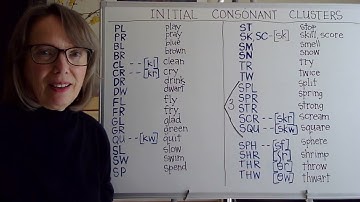 INITIAL CONSONANT CLUSTERS
PL play
PR pray
BL blue
BR brown
CL --[kl] clean
CR --[kr] cry
DR drink
DW dwarf
FL fly
FR fry
GL glad
GR green
QU --[kw] quit
SL slow
SW swim
SP spend
ST stop
SK, SC-[sk] skill, score
SM smell
SN snow
TR try
TW twice
3
SPL split
SPR spring
STR strong
SCR --[skr] scream
SQU --[skw] square
SPH --[sf] sphere
SHR --[ʃr] shrimp
THR --[θr] throw
THW --[θw] thwart